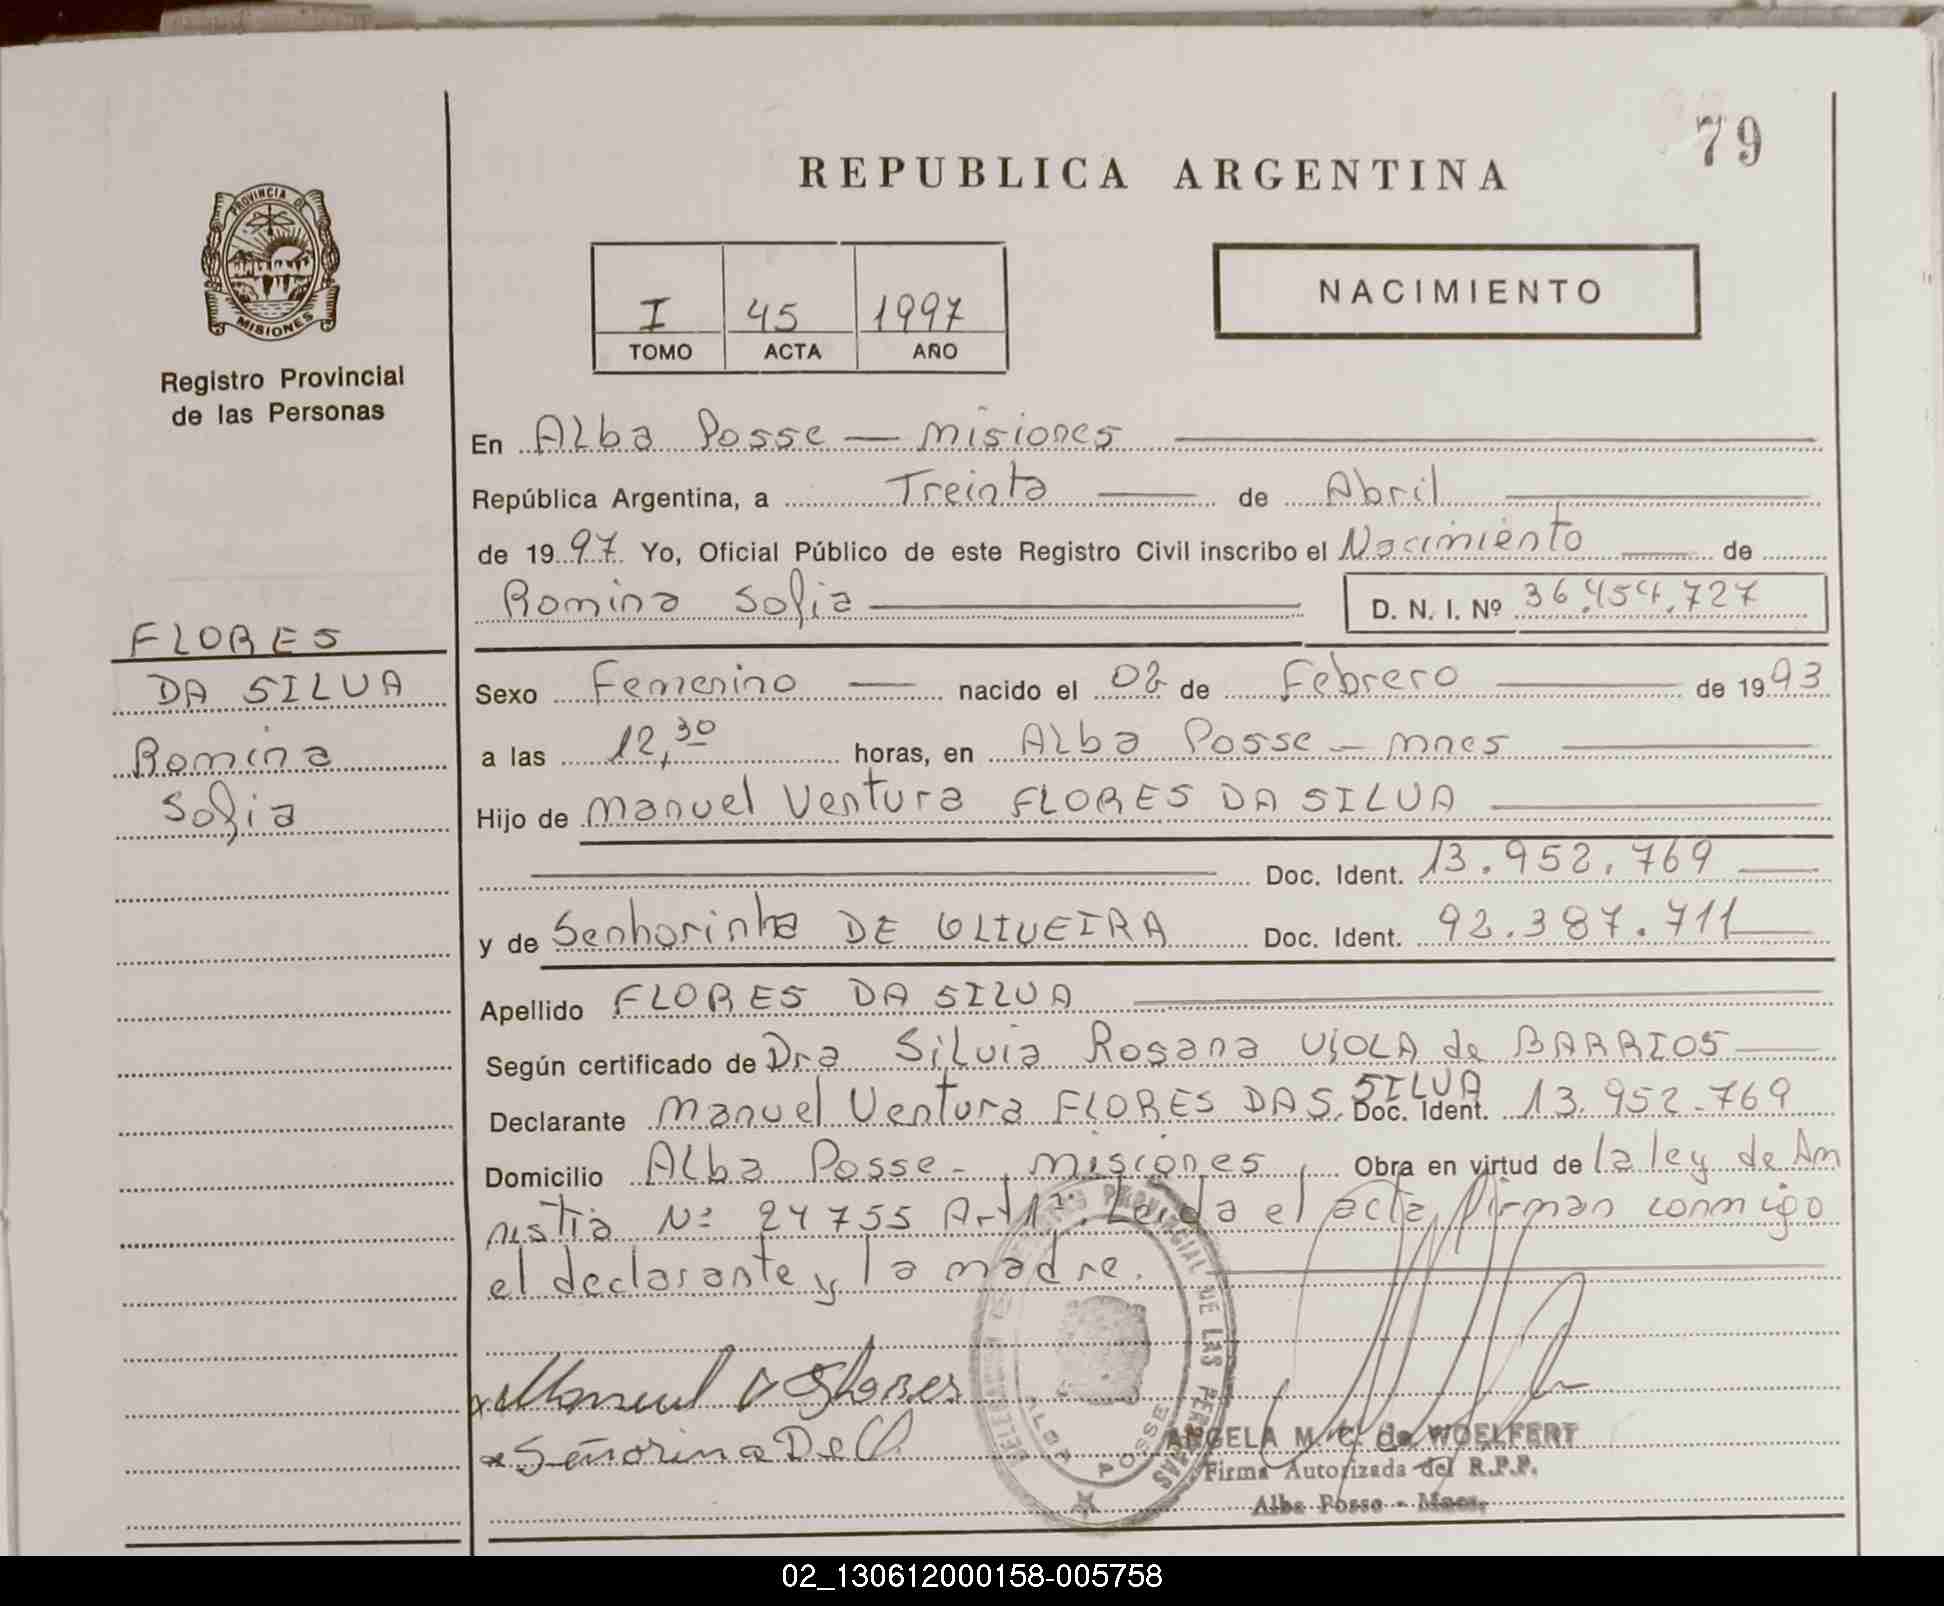 79
REPUBLICA ARGENTINA
PROVINCIA DE
MISIONES
Registro Provincial
de las Personas
I 45 1997
TOMO ACTA AÑO
NACIMIENTO
En Alba Posse — Misiones
República Argentina, a Treinta — de Abril
de 1997 Yo, Oficial Público de este Registro Civil inscribo el Nacimiento — de
Romina Sofia D. N. I. Nº 36.454.727
FLORES
DA SILVA
Romina
Sofia
Sexo Femenino — nacido el 02 de Febrero — de 1993
a las 12,30 horas, en Alba Posse — Mnes
Hijo de Manuel Ventura FLORES DA SILVA
Doc. Ident. 13.952.769
y de Senhorinha DE OLIVEIRA Doc. Ident. 92.387.711
Apellido FLORES DA SILVA
Según certificado de Dra Silvia Rosana VIOLA de BARRIOS
Declarante Manuel Ventura FLORES DA S. SILVA Doc. Ident. 13.952.769
Domicilio Alba Posse - Misiones Obra en virtud de la ley de Am
nistia Nº 24755 Art 1º. Leida el acta, firman conmigo
el declarante y la madre.
Manuel V Flores
Señorina De O.
DELEGACION REGISTRO PROVINCIAL DE LAS PERSONAS
ALBA POSSE
ANGELA M. C. de WOELFERT
Firma Autorizada del R.P.P.
Alba Posse - Mnes.
02_130612000158-005758